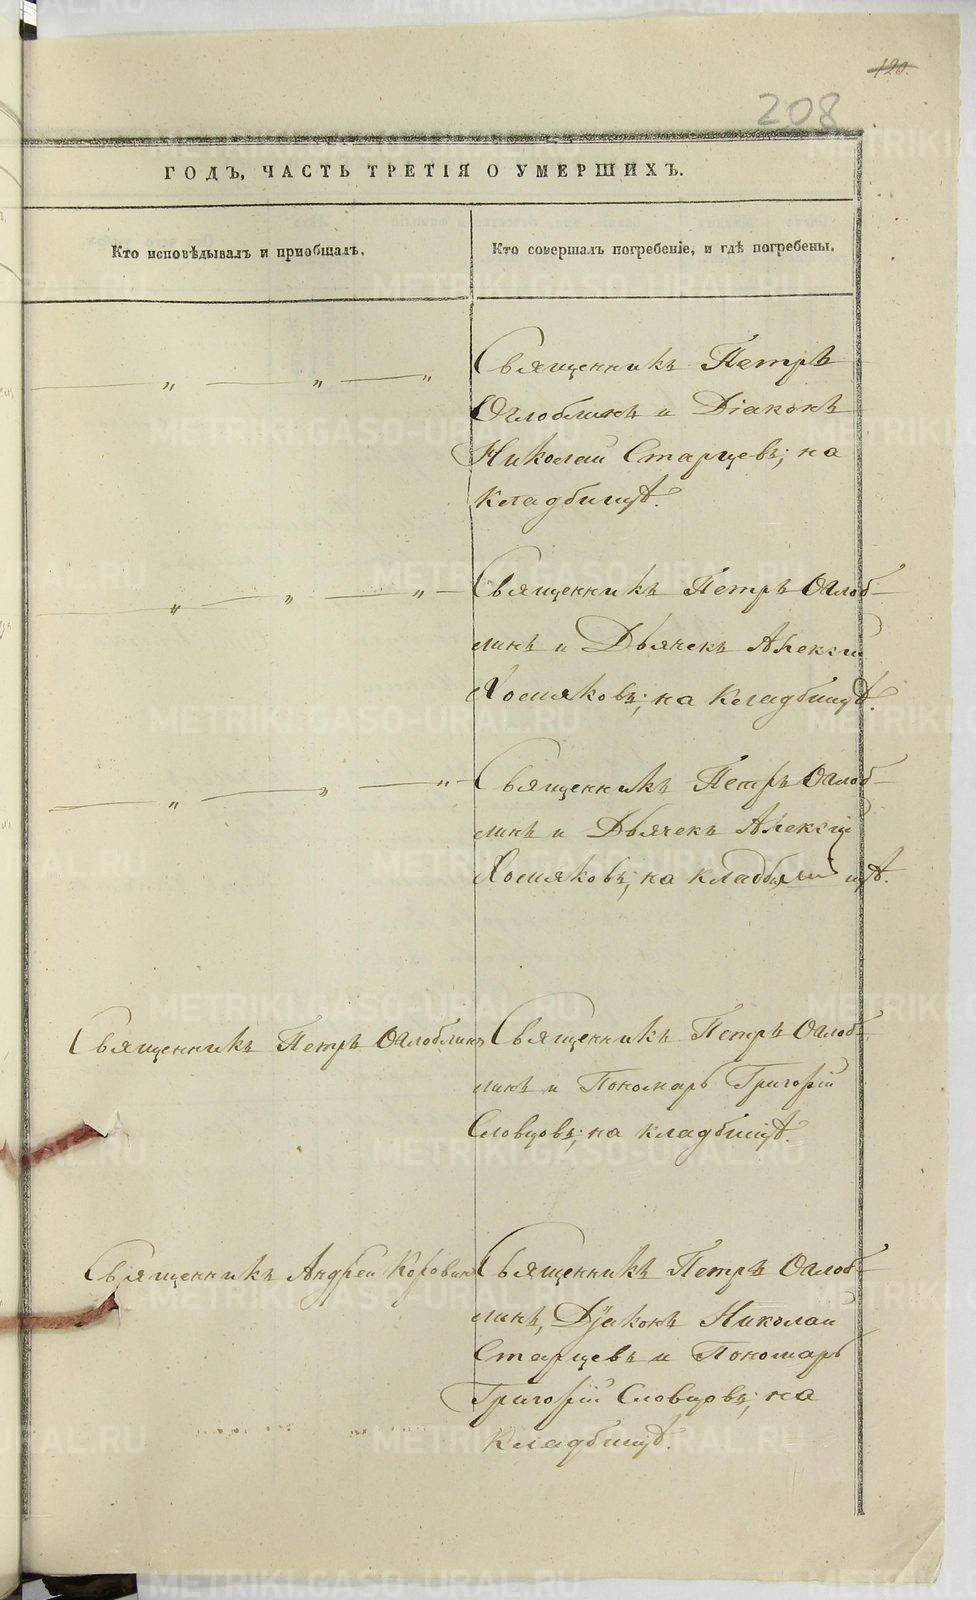 120.
208
ГОДЪ, ЧАСТЬ ТРЕТІЯ О УМЕРШИХЪ.
Кто исповѣдывалъ и пріобщалъ.
Кто совершалъ погребеніе, и гдѣ погребены.
Священникъ Петръ
Оглоблинъ и Діаконъ
Николай Старцевъ; на
кладбищѣ.
Священникъ Петръ Оглоб-
линъ и Дьячекъ Алексій
Хомяковъ; на кладбищѣ.
Священникъ Петръ Оглоб-
линъ и Дьячекъ Алексій
Хомяковъ; на кладбищѣ.
Священникъ Петръ Оглоблинъ
Священникъ Петръ Оглоб-
линъ и Пономарь Григорій
Словцовъ; на кладбищѣ.
Священникъ Андрей Коровинъ
Священникъ Петръ Оглоб-
линъ, Діаконъ Николай
Старцевъ и Пономарь
Григорій Словцовъ; на
кладбищѣ.
METRIKI.GASO-URAL.RU